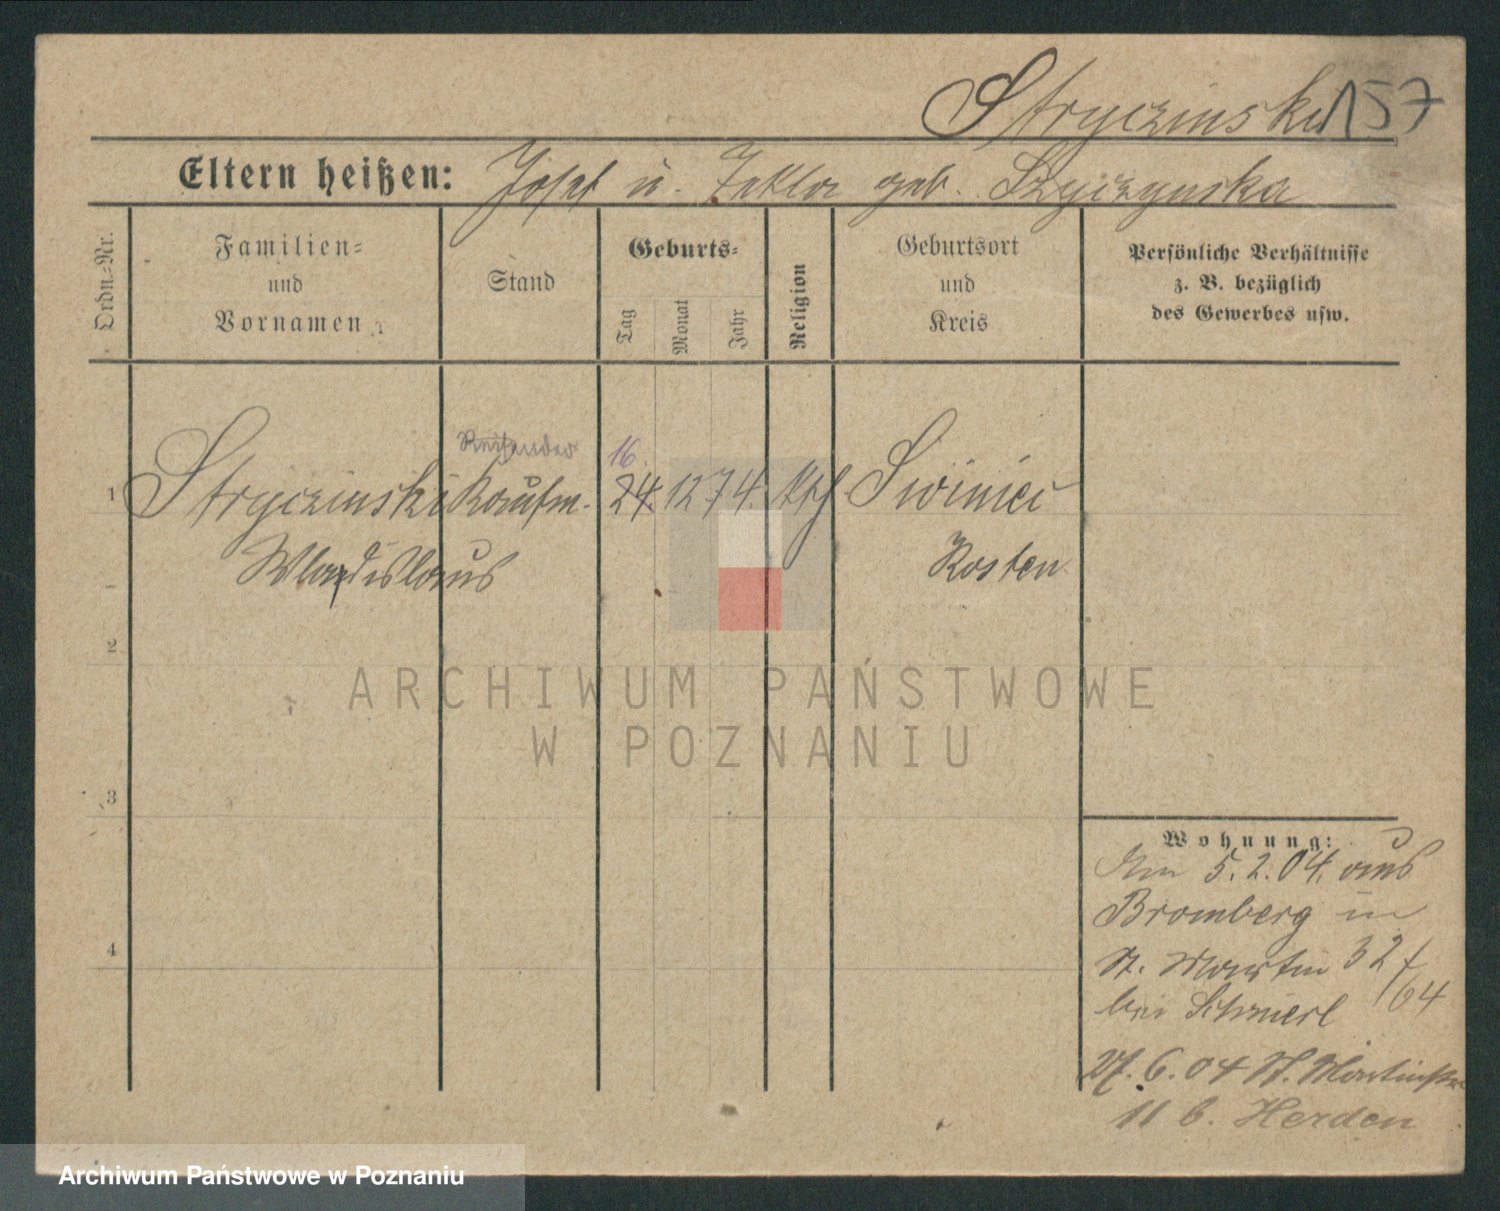 Stryczinski 157
Eltern heißen: Josef u. Tekla geb. Szyczynska
Ordn.=Nr.
Familien=
und
Vornamen
Stand
Geburts=
Tag
Monat
Jahr
Religion
Geburtsort
und
Kreis
Persönliche Verhältnisse
z. B. bezüglich
des Gewerbes usw.
Reisender 16.
1 Stryczinski Kaufm. 24. 12 74. kth Swiniec
Wladislaus Kosten
2
3
4
ARCHIWUM PAŃSTWOWE
W POZNANIU
Wohnung:
Am 5.2.04. aus
Bromberg in
St. Martin 32 /
bei 64
27.6.04 St. Martinstr
11 b. Herden
Archiwum Państwowe w Poznaniu